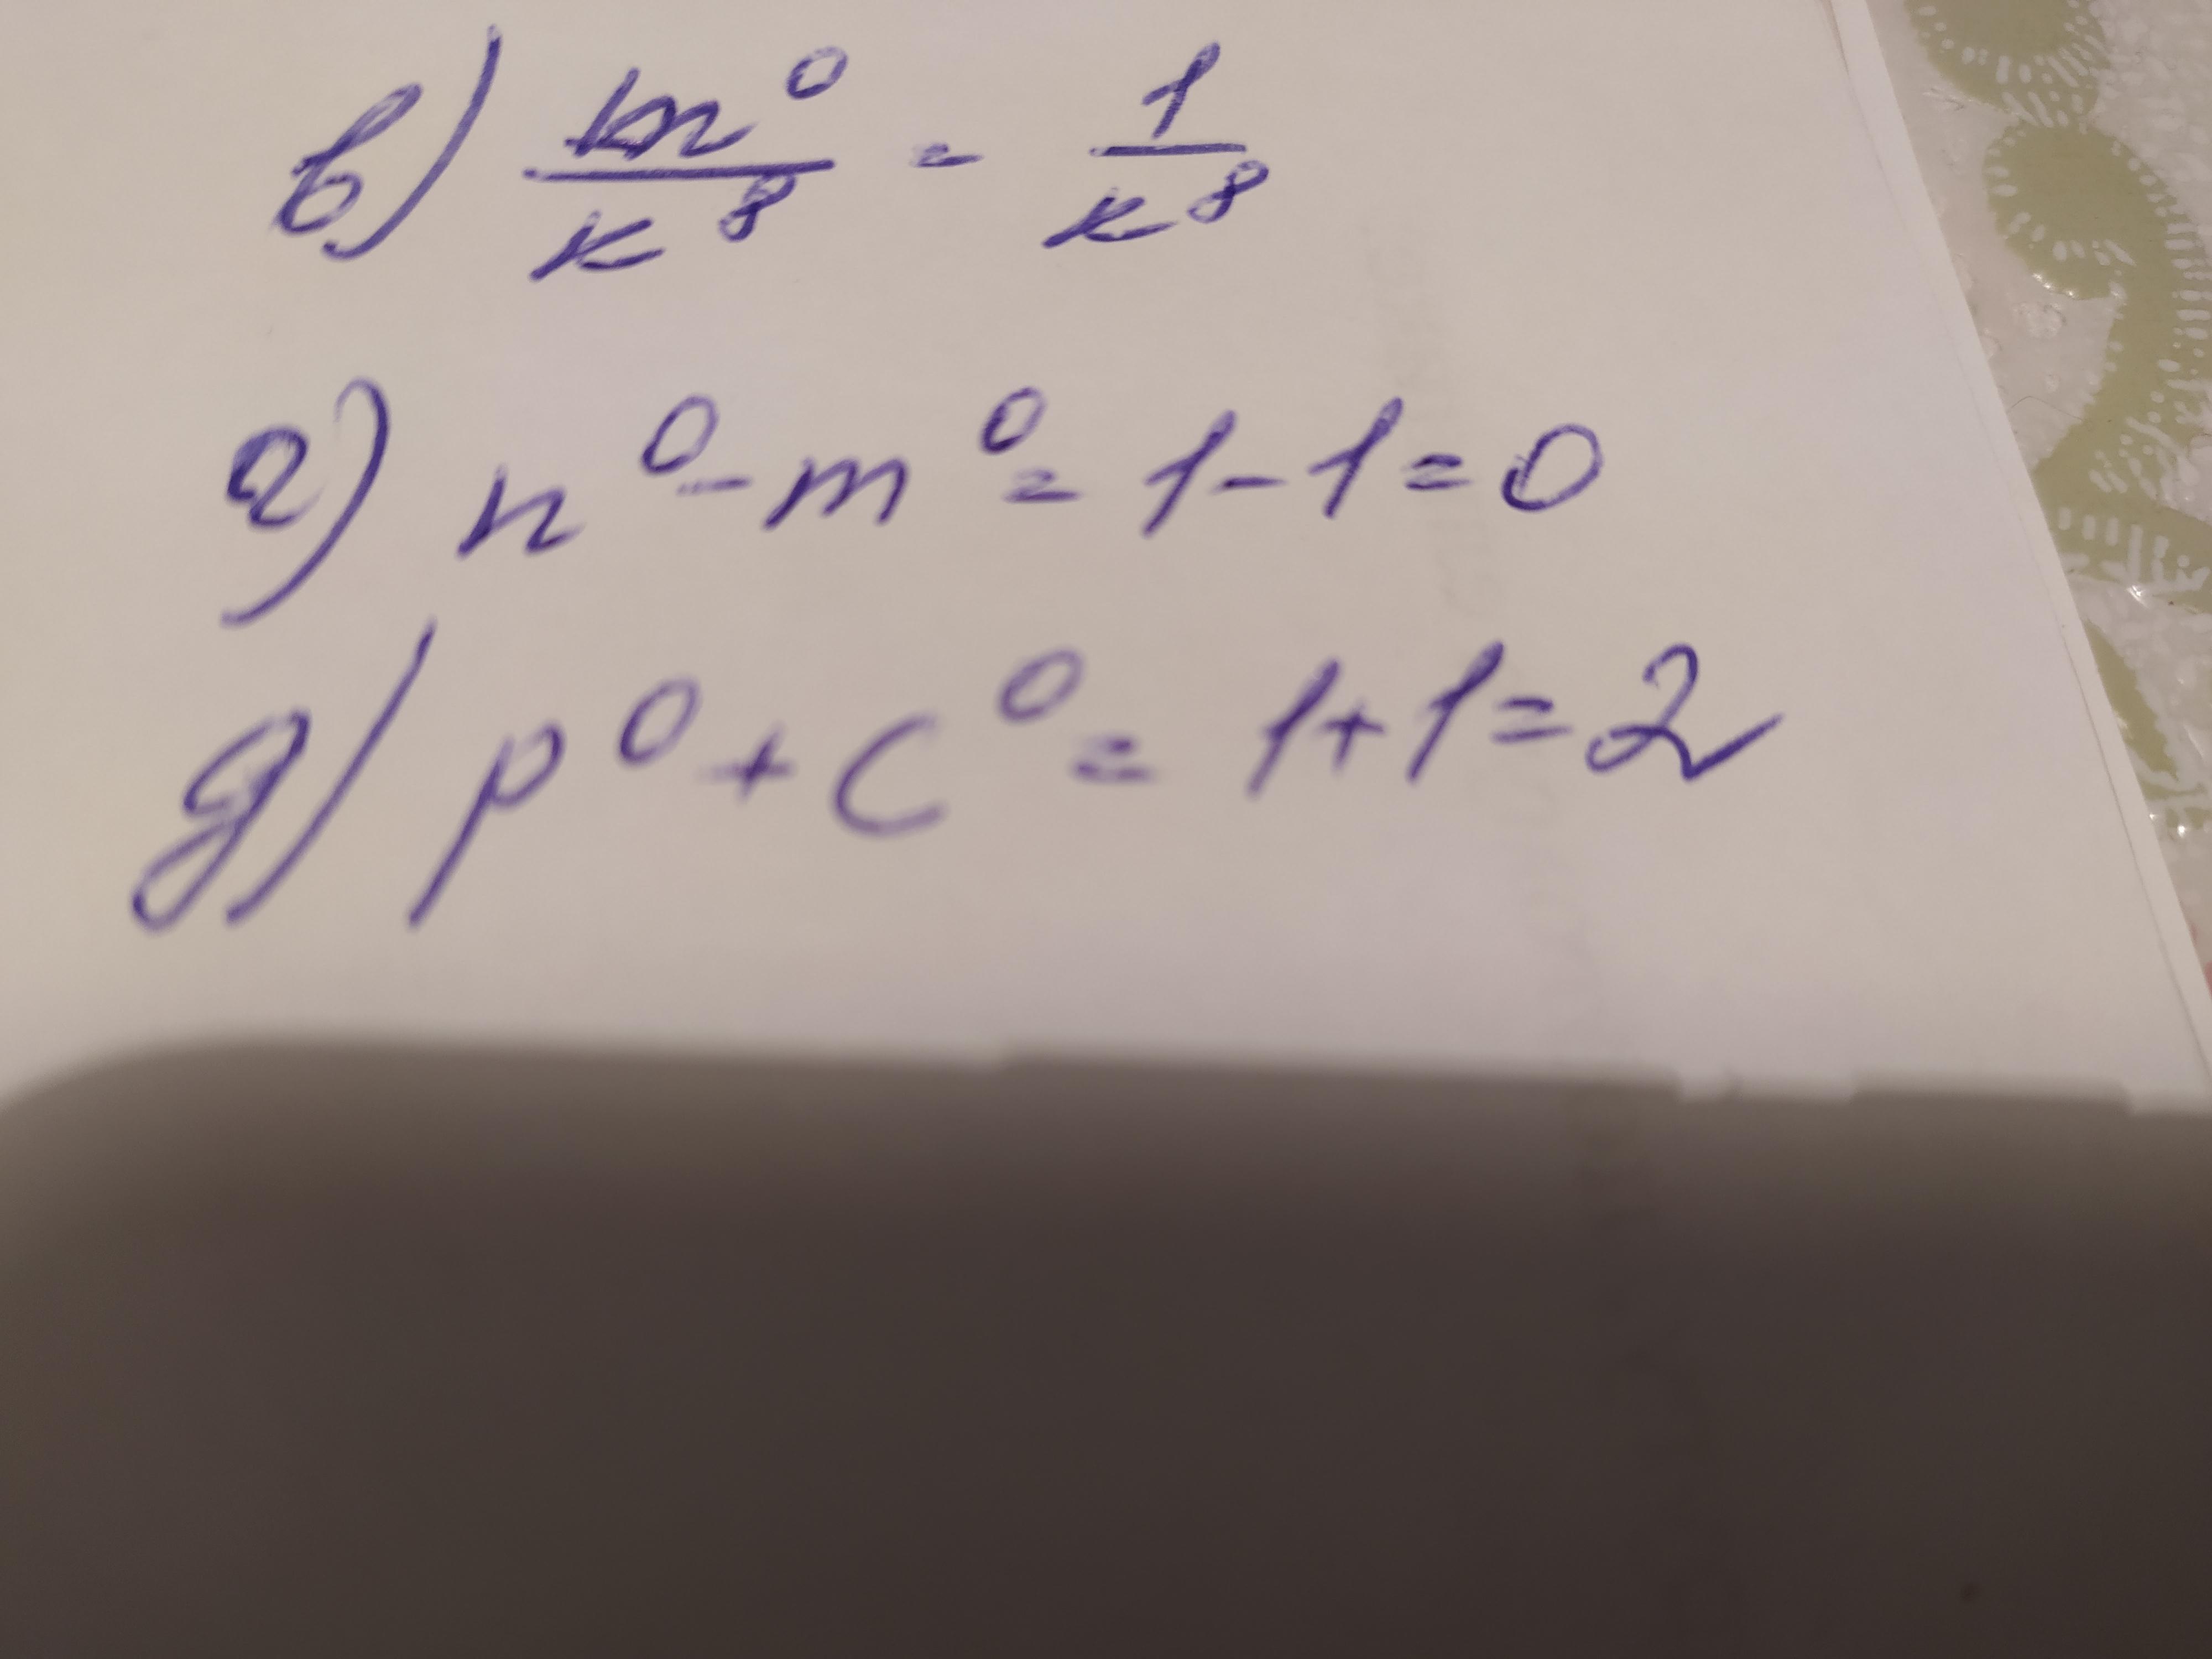 в) m⁰/k⁸ = 1/k⁸
г) n⁰ - m⁰ = 1 - 1 = 0
д) p⁰ + c⁰ = 1 + 1 = 2